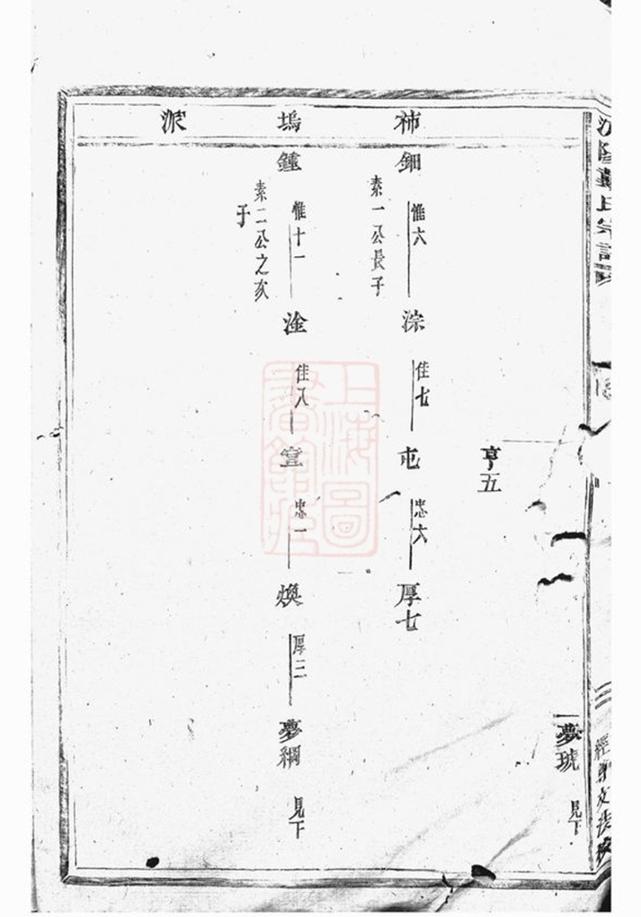 亨五
夢琥
見下
柿塢派
鈿
惟六
素一公長子
淙
佳七
屯
忠六
厚七
鍾
惟十一
素二公之次子
淦
佳八
宣
忠一
煥
厚三
夢綱
見下
上海圖書館藏